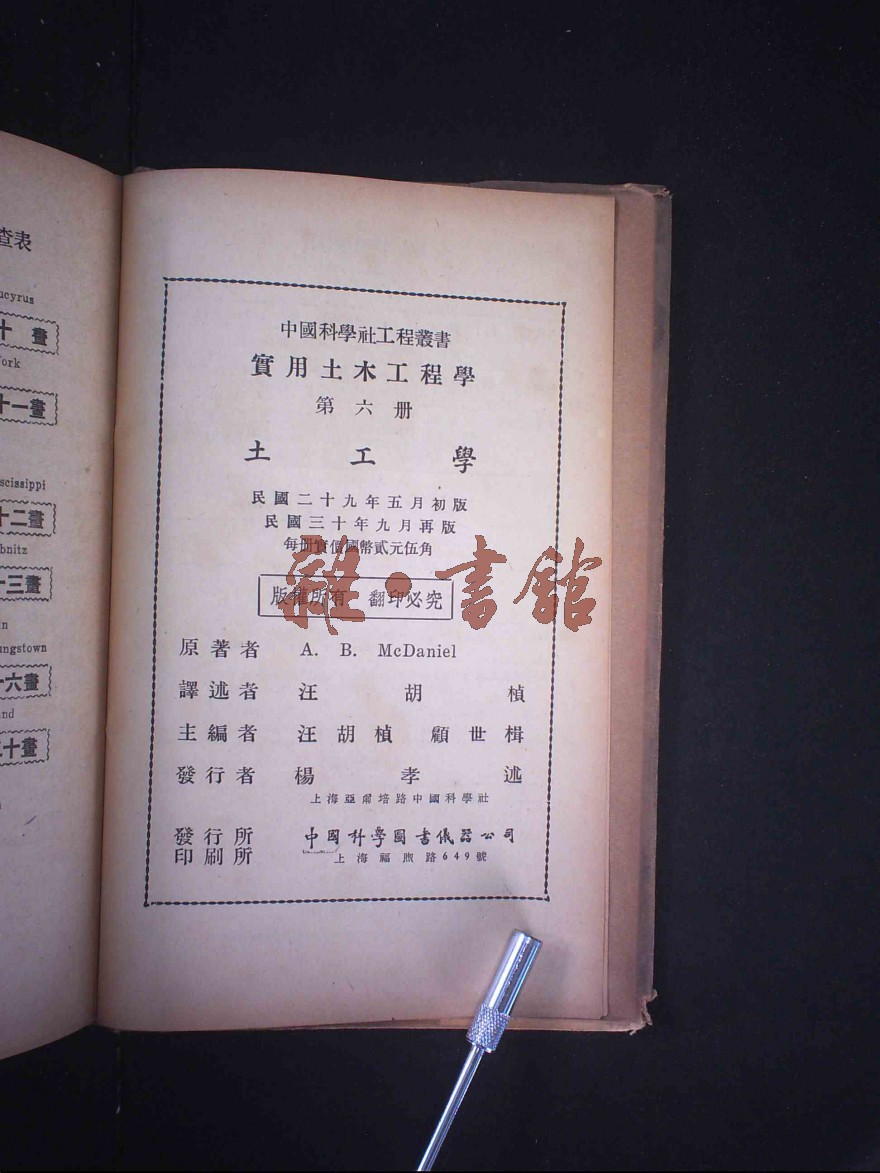 查表
ucyrus
十畫
ork
十一畫
scissippi
十二畫
bnitz
十三畫
n
ungstown
十六畫
nd
十畫
中國科學社工程叢書
實用土木工程學
第六册
土工學
民國二十九年五月初版
民國三十年九月再版
每册實價國幣貳元伍角
版權所有 翻印必究
雜·書館
原著者 A. B. McDaniel
譯述者 汪胡楨
主編者 汪胡楨 顧世楫
發行者 楊孝述
上海亞爾培路中國科學社
發行所
印刷所
中國科學圖書儀器公司
上海福煦路649號